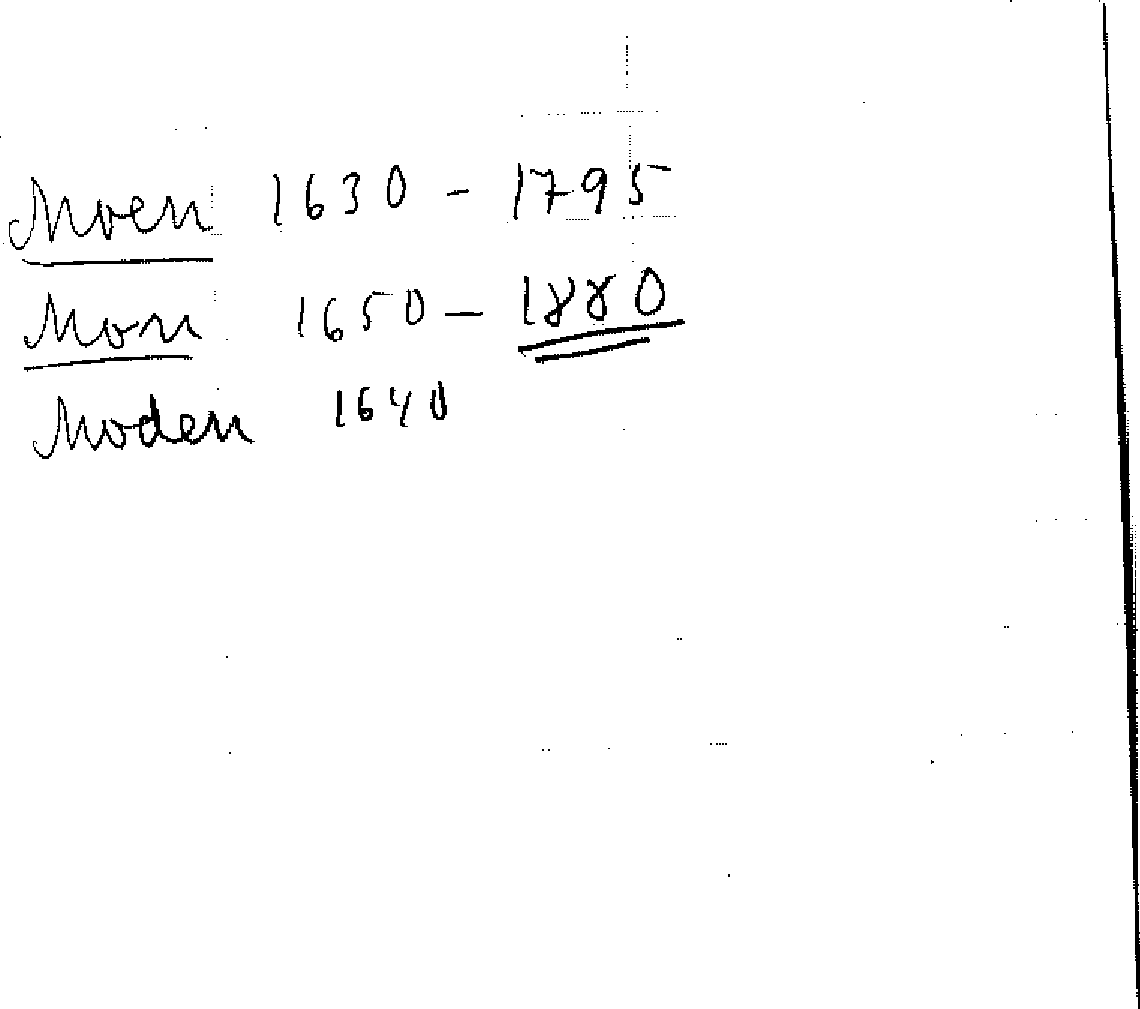 Moen 1630 - 1795
Mon 1650 - 1880
Moden 1640